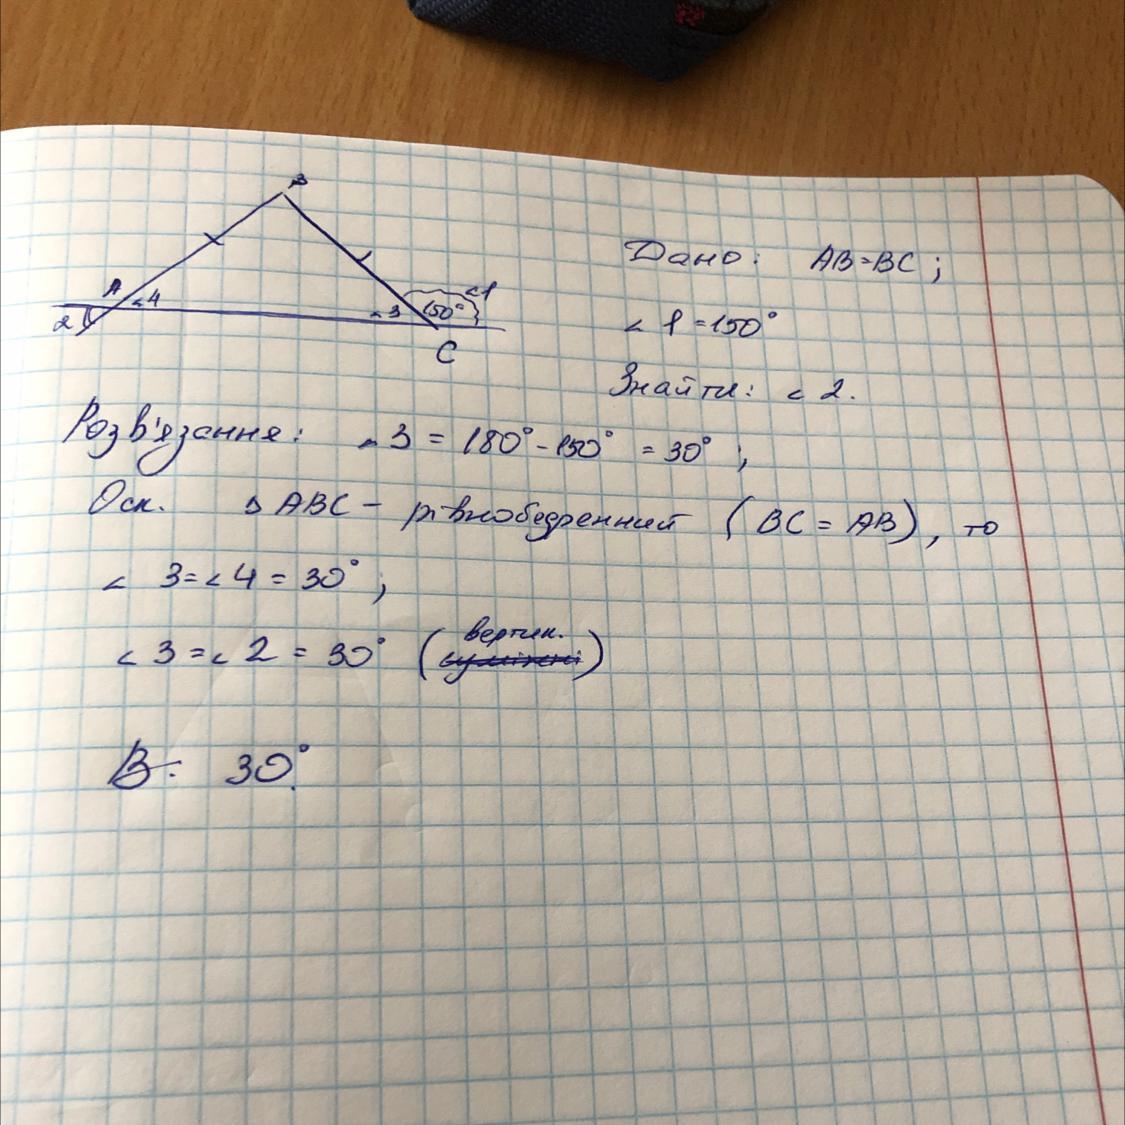 B
A
∠4
2
∠3
150°
∠1
C
Дано: AB=BC;
∠1=150°
Знайти: ∠2.
Розв'язання: ∠3 = 180° - 150° = 30° ;
Оск. △ABC - рівнобедренний (BC = AB), то
∠3=∠4 = 30° ;
вертик.
∠3=∠2 = 30° (суміжні)
В: 30°.